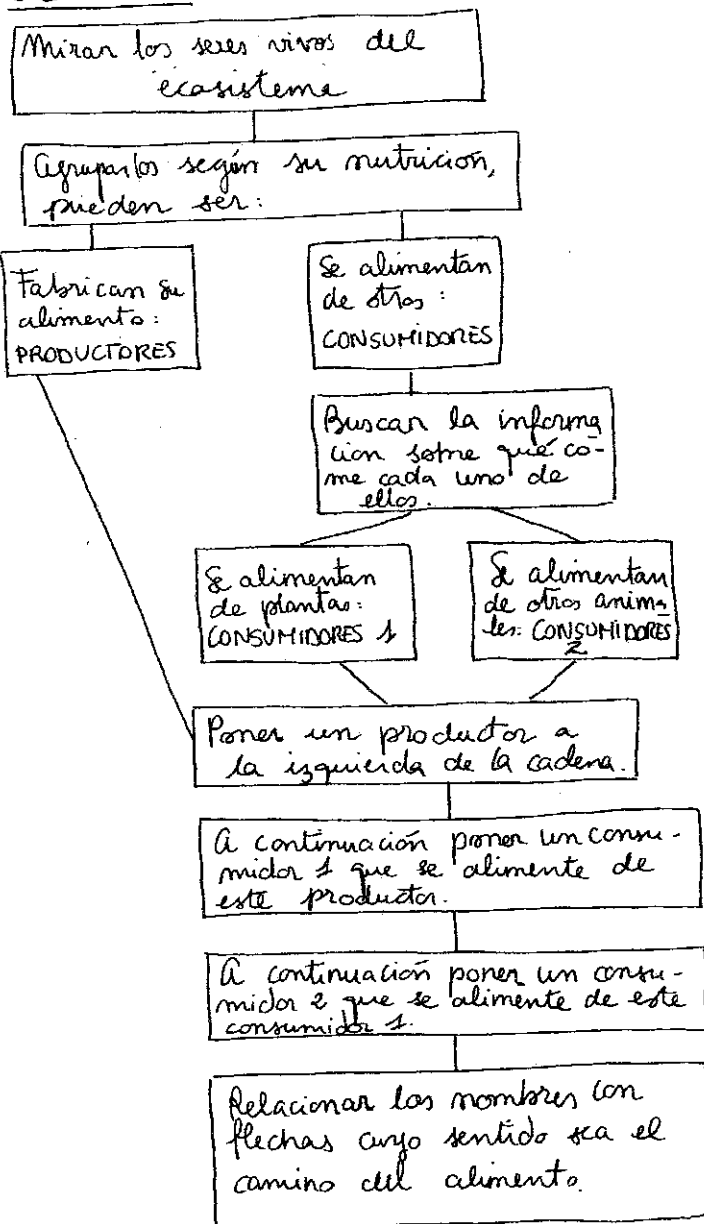 Mirar los seres vivos del
ecosistema
Agruparlos según su nutrición,
pueden ser:
Fabrican su
alimento:
PRODUCTORES
Se alimentan
de otros:
CONSUMIDORES
Buscar la informa
ción sobre qué co-
me cada uno de
ellos.
Se alimentan
de plantas:
CONSUMIDORES 1
Se alimentan
de otros anima
les: CONSUMIDORES
2
Poner un productor a
la izquierda de la cadena.
A continuación poner un consu-
midor 1 que se alimente de
este productor.
A continuación poner un consu-
midor 2 que se alimente de este
consumidor 1.
Relacionar los nombres con
flechas cuyo sentido sea el
camino del alimento.